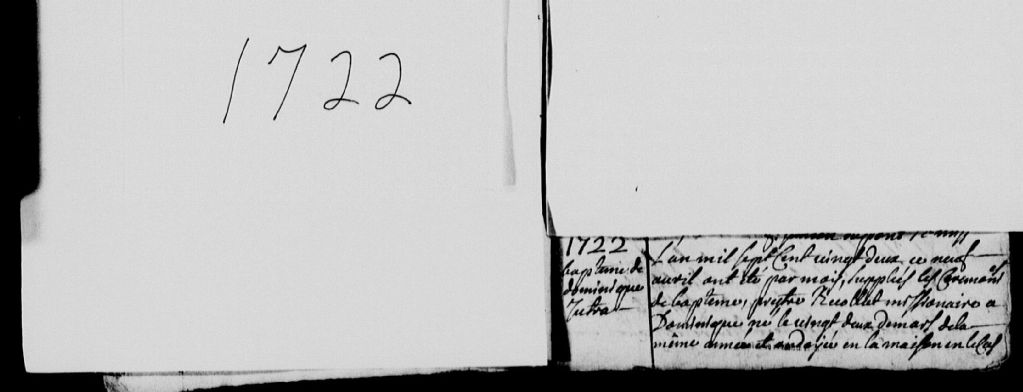 1722
1722
baptême de
dominique
Jutra
L'an mil sept Cent vingt deux ce neuf
avril ont été par moy, suppliés les Ceremonies
de baptême, prêtre Recollet missionaire a
Dominique né le vingt deux de mars de la
même année et ondoyée en la maison